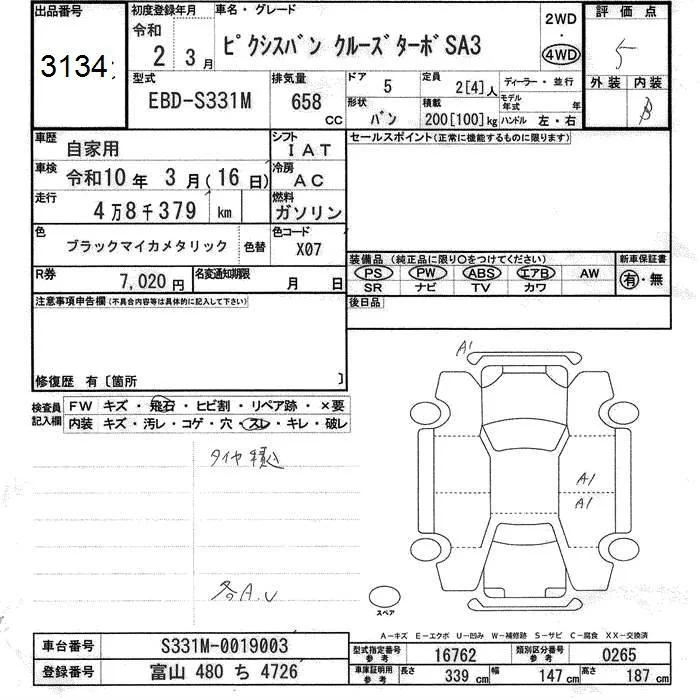 出品番号
3134
初度登録年月
令和
2 3月
車名・グレード
ピクシスバン クルーズターボSA3
2WD
・
4WD
評価点
5
外装 内装
B
型式
EBD-S331M
排気量
658
CC
ドア
5
形状
バン
定員
2[4]人
積載
200[100]kg
ディーラー・並行
モデル年式 年
ハンドル 左・右
車歴
自家用
シフト
IAT
車検
令和10年 3月(16日)
冷房
AC
走行
4万8千379 km
燃料
ガソリン
色
ブラックマイカメタリック
色替
色コード
X07
R券
7,020円
名変通知期限
月 日
セールスポイント(正常に機能するものに限ります)
装備品(純正品に限り○をつけてください)
PS PW ABS エアB AW
SR ナビ TV カワ
新車保証書
有・無
後日品
注意事項申告欄(不具合内容等は具体的に記入して下さい)
修復歴 有〔箇所 〕
検査員
記入欄
FW キズ・飛石・ヒビ割・リペア跡・×要
内装 キズ・汚レ・コゲ・穴・スレ・キレ・破レ
タイヤ積込
各A.U
A1
A1
A1
スペア
A-キズ E-エクボ U-凹み W-補修跡 S-サビ C-腐食 XX-交換済
車台番号
S331M-0019003
登録番号
富山 480 ち 4726
型式指定番号
参考
16762
類別区分番号
参考
0265
車庫証明用
参考
長さ
339cm
幅
147cm
高さ
187cm